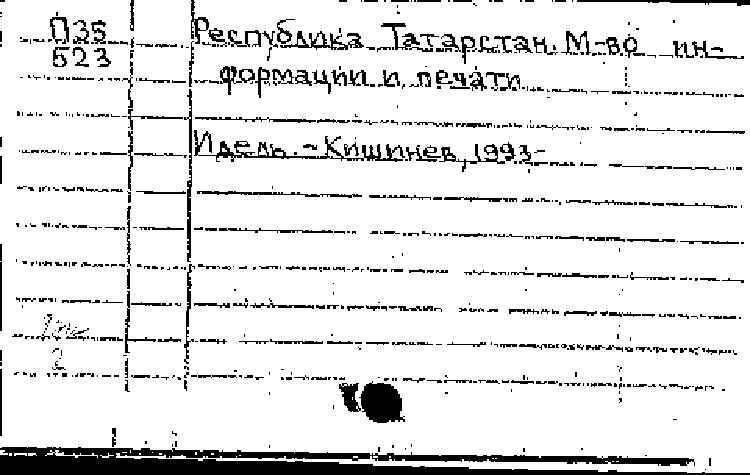 П35
523
Республика Татарстан. М-во ин-
формации и печати
Идель. - Кишинев, 1993-
2